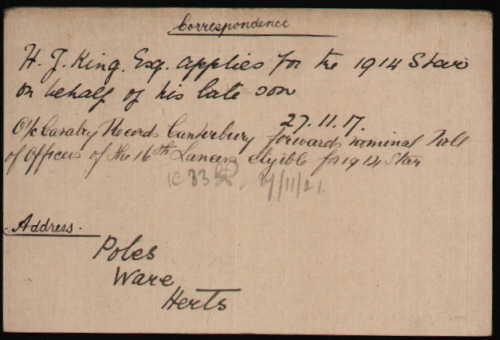 Correspondence
H. J. King. Esq. applies for the 1914 Star
on behalf of his late son
27.11.17.
O/c Cavalry Record Canterbury forwards nominal Roll
of Officers of the 16th Lancers eligible for 1914 Star
/11/21.
Address.
Poles
Ware
Herts